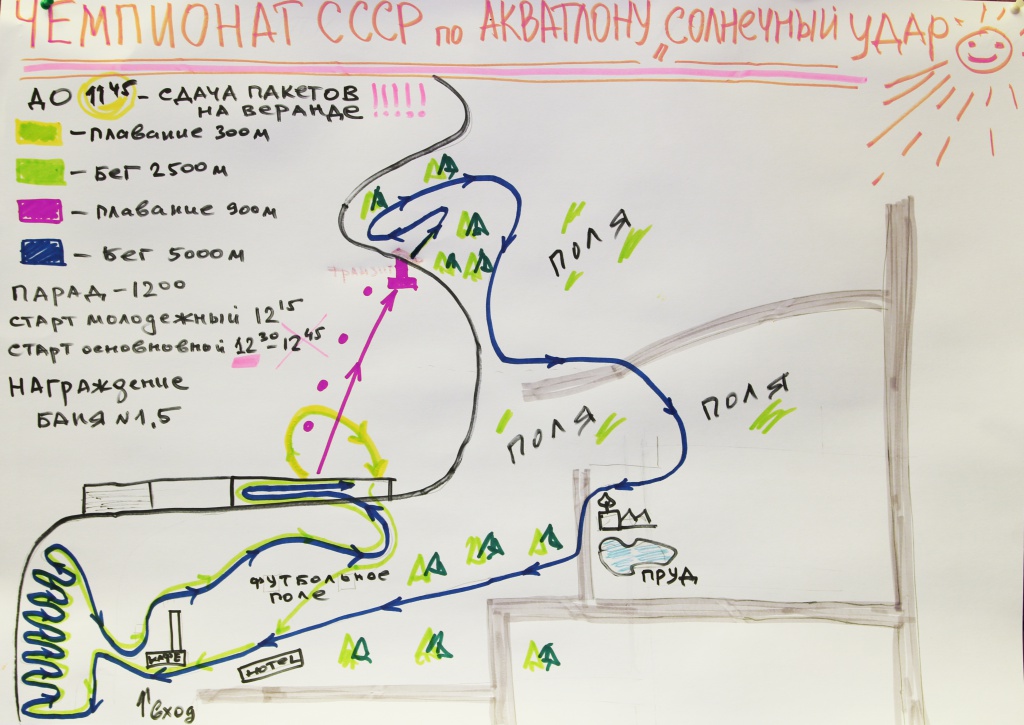 ЧЕМПИОНАТ СССР по АКВАТЛОНУ "СОЛНЕЧНЫЙ УДАР"
ДО 11 45 - СДАЧА ПАКЕТОВ
НА ВЕРАНДЕ !!!!!
- плавание 300м
- Бег 2500м
- плавание 900м
- Бег 5000м
ПАРАД - 1200
СТАРТ молодежный 12 15
СТАРТ основновный 12 30 - 12 45
НАГРАЖДЕНИЕ
БАНЯ №1,5
ПОЛЯ
ПОЛЯ
ПОЛЯ
ПРУД
ФУТБОЛЬНОЕ
ПОЛЕ
КАФЕ
HOTEL
1й вход